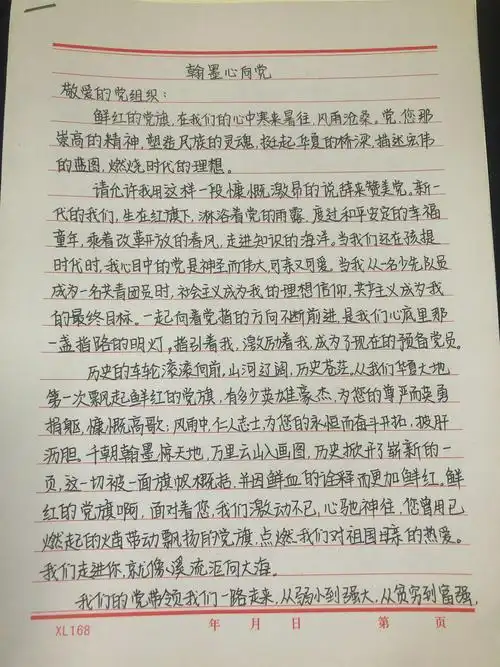 翰墨心向党
敬爱的党组织:
鲜红的党旗,在我们的心中寒来暑往,风雨沧桑。党,您那
崇高的精神,塑造民族的灵魂,挺起华夏的桥梁,描述宏伟
的蓝图,燃烧时代的理想。
请允许我用这样一段慷慨激昂的说辞来赞美党。新一
代的我们,生在红旗下,淋浴着党的雨露,度过和平安定的幸福
童年,乘着改革开放的春风,走进知识的海洋。当我们还在孩提
时代时,我心目中的党是神圣而伟大,可亲又可爱。当我从一名少先队员
成为一名共青团员时,社会主义成为我的理想信仰,共产主义成为我
的最终目标。一起向着党指的方向不断前进,是我们心底里那
一盏指路的明灯,指引着我,激励着我,成为了现在的预备党员。
历史的车轮滚滚向前,山河辽阔,历史苍茫,从我们华夏大地
第一次飘起鲜红的党旗,有多少英雄豪杰,为您的尊严而英勇
捐躯,慷慨高歌;风雨中,仁人志士,为您的永恒而奋斗开拓,披肝
沥胆。千朝翰墨惊天地,万里云山入画图,历史掀开了崭新的一
页,这一切被一面旗帜概括,并因鲜血的诠释而更加鲜红。鲜
红的党旗啊,面对着您,我们激动不已,心驰神往,您曾用已
燃起的火苗带动飘扬的党旗,点燃我们对祖国母亲的热爱。
我们走进你,就像溪流汇向大海。
我们的党带领我们一路走来,从弱小到强大,从贫穷到富强,
XL168 年 月 日 第 页